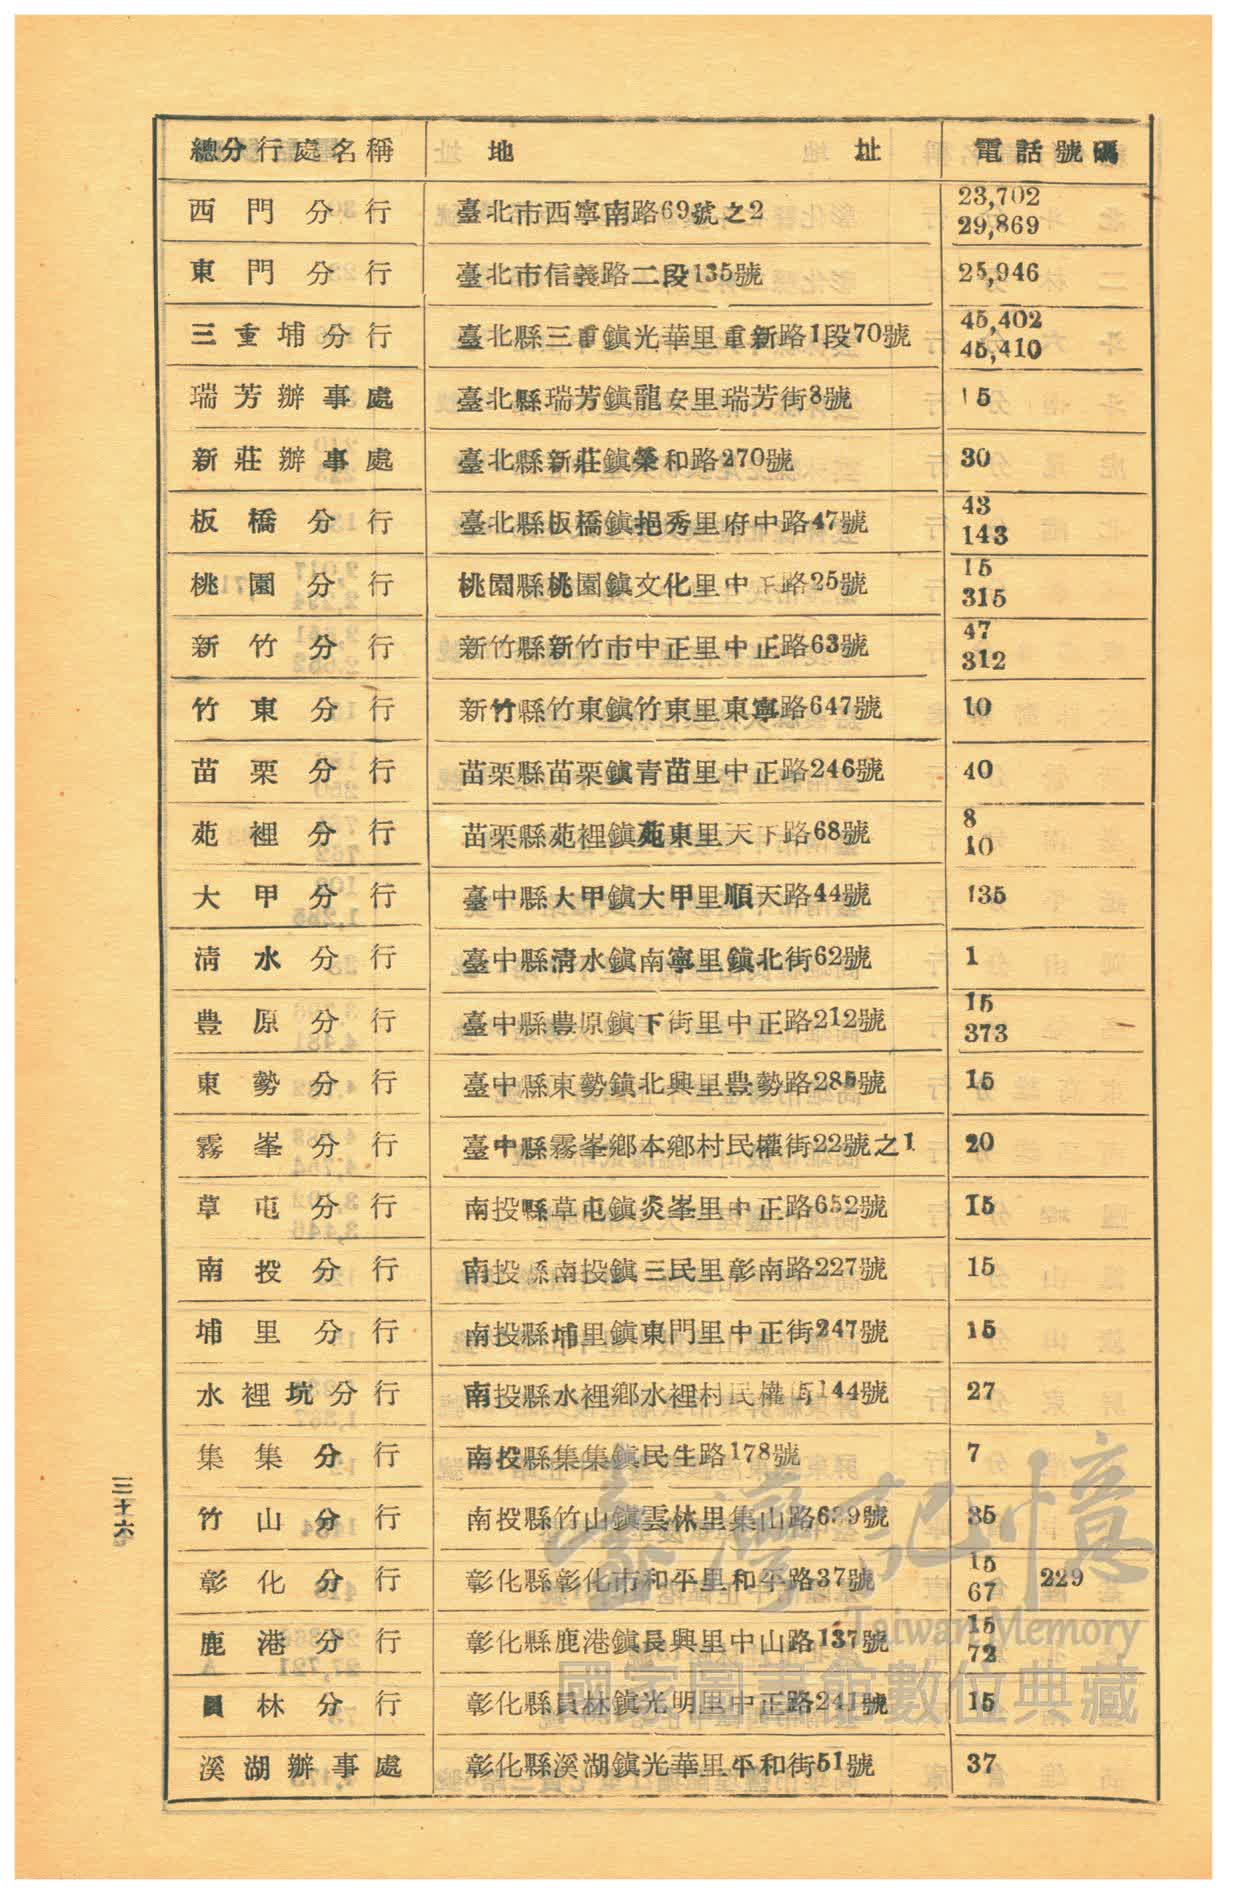 總分行處名稱 地址 電話號碼
西門分行 臺北市西寧南路69號之2 23,702
29,869
東門分行 臺北市信義路二段135號 25,946
三重埔分行 臺北縣三重鎮光華里重新路1段70號 45,402
45,410
瑞芳辦事處 臺北縣瑞芳鎮龍安里瑞芳街3號 15
新莊辦事處 臺北縣新莊鎮榮和路270號 30
板橋分行 臺北縣板橋鎮挹秀里府中路47號 43
143
桃園分行 桃園縣桃園鎮文化里中正路25號 15
315
新竹分行 新竹縣新竹市中正里中正路63號 47
312
竹東分行 新竹縣竹東鎮竹東里東寧路647號 10
苗栗分行 苗栗縣苗栗鎮青苗里中正路246號 40
苑裡分行 苗栗縣苑裡鎮苑東里天下路68號 8
10
大甲分行 臺中縣大甲鎮大甲里順天路44號 135
清水分行 臺中縣清水鎮南寧里鎮北街62號 1
豊原分行 臺中縣豊原鎮下街里中正路212號 15
373
東勢分行 臺中縣東勢鎮北興里豊勢路285號 15
霧峯分行 臺中縣霧峯鄉本鄉村民權街22號之1 20
草屯分行 南投縣草屯鎮炎峯里中正路652號 15
南投分行 南投縣南投鎮三民里彰南路227號 15
埔里分行 南投縣埔里鎮東門里中正街247號 15
水裡坑分行 南投縣水裡鄉水裡村民權街144號 27
集集分行 南投縣集集鎮民生路178號 7
竹山分行 南投縣竹山鎮雲林里集山路639號 35
彰化分行 彰化縣彰化市和平里和平路37號 15
67 229
鹿港分行 彰化縣鹿港鎮長興里中山路137號 15
72
員林分行 彰化縣員林鎮光明里中正路241號 15
溪湖辦事處 彰化縣溪湖鎮光華里平和街51號 37
三十六
臺灣記憶
Taiwan Memory
國家圖書館數位典藏